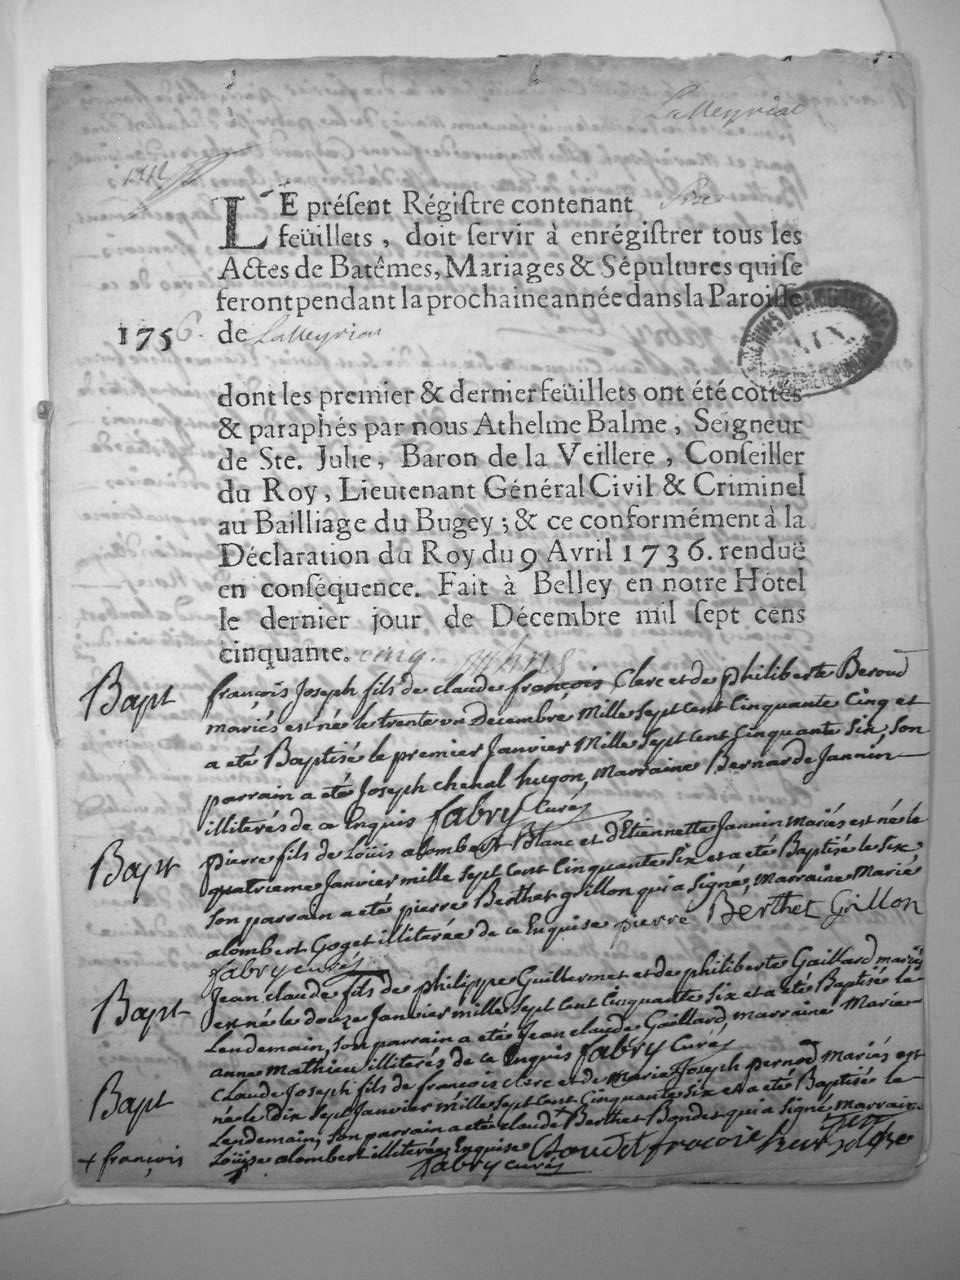 Lalleyriat
LE présent Régistre contenant
feüillets, doit servir à enrégistrer tous les
Actes de Batêmes, Mariages & Sépultures qui se
feront pendant la prochaine année dans la Paroisse
1756. de Lalleyriat
dont les premier & dernier feüillets ont été cottés
& paraphés par nous Athelme Balme, Seigneur
de Ste. Julie, Baron de la Veillere, Conseiller
du Roy, Lieutenant Général Civil & Criminel
au Bailliage du Bugey; & ce conformément à la
Déclaration du Roy du 9 Avril 1736. renduë
en conséquence. Fait à Belley en notre Hôtel
le dernier jour de Décembre mil sept cens
cinquante. cinq.
Bapt françois Joseph fils de claude françois Clerc et de philiberte Beroud
mariés est né le trente un Decembre Mille Sept Cent Cinquante Cinq et
a eté Baptisé le premier Janvier Mille Sept Cent Cinquante Six, Son
parrain a eté Joseph chenal hugon, Marraine Bernarde Jannin
illiterés de ce Enquis fabry Curé
Bapt pierre fils de Loüis alombert Blanc et d'Etiennette Jannin Mariés est né le
quatrieme Janvier mille Sept Cent Cinquante Six et a eté Baptisé le Six
Son parrain a eté pierre Berthet grillon qui a Signé, Marraine Marie
alombert Goget illiterée de ce Enquise pierre Berthet Grillon
fabry curé
Bapt Jean claude fils de philippe Guillermet et de philiberte Gaillard mariés
est né le douze Janvier mille Sept Cent Cinquante Six et a eté Baptisé le
Lendemain, Son parrain a eté Jean claude Gaillard, marraine Marie
anne Mathieu illiterés de ce Enquis fabry Curé
Bapt Claude Joseph fils de françois clerc et de Marie Joseph pernod Mariés est
né le Dix Sept Janvier mille Sept Cent Cinquante Six et a eté Baptisé le
Lendemain, Son parrain a eté claude + Berthet Bondet qui a Signé, Marraine
+ françois Loüise alombert illiterée, Enquise
fabry curé